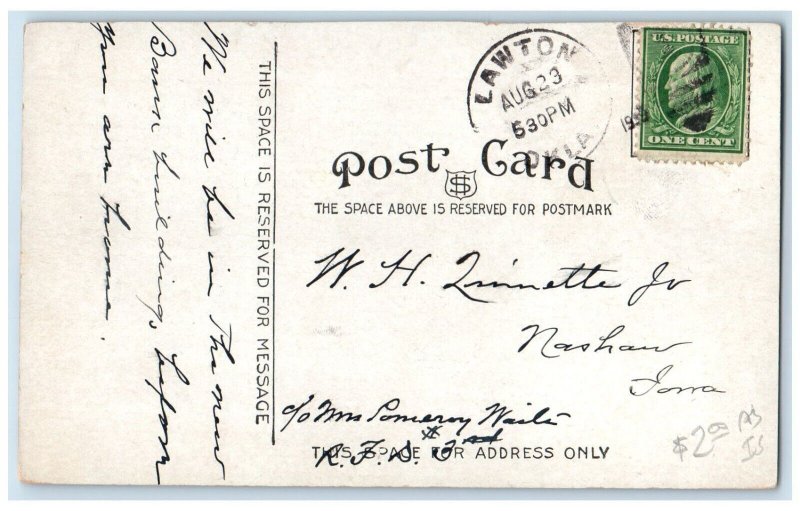 We will be in The new
Bank building, before
you are home.
THIS SPACE IS RESERVED FOR MESSAGE
LAWTON
AUG 23
530PM
OKLA
U.S. POSTAGE
ONE CENT
Post Card
THE SPACE ABOVE IS RESERVED FOR POSTMARK
W. H. Quinette Jr
Nashua
Iowa
c/o Mrs Pomeroy Waite
R. F. D. #
THIS SPACE FOR ADDRESS ONLY
$2.00